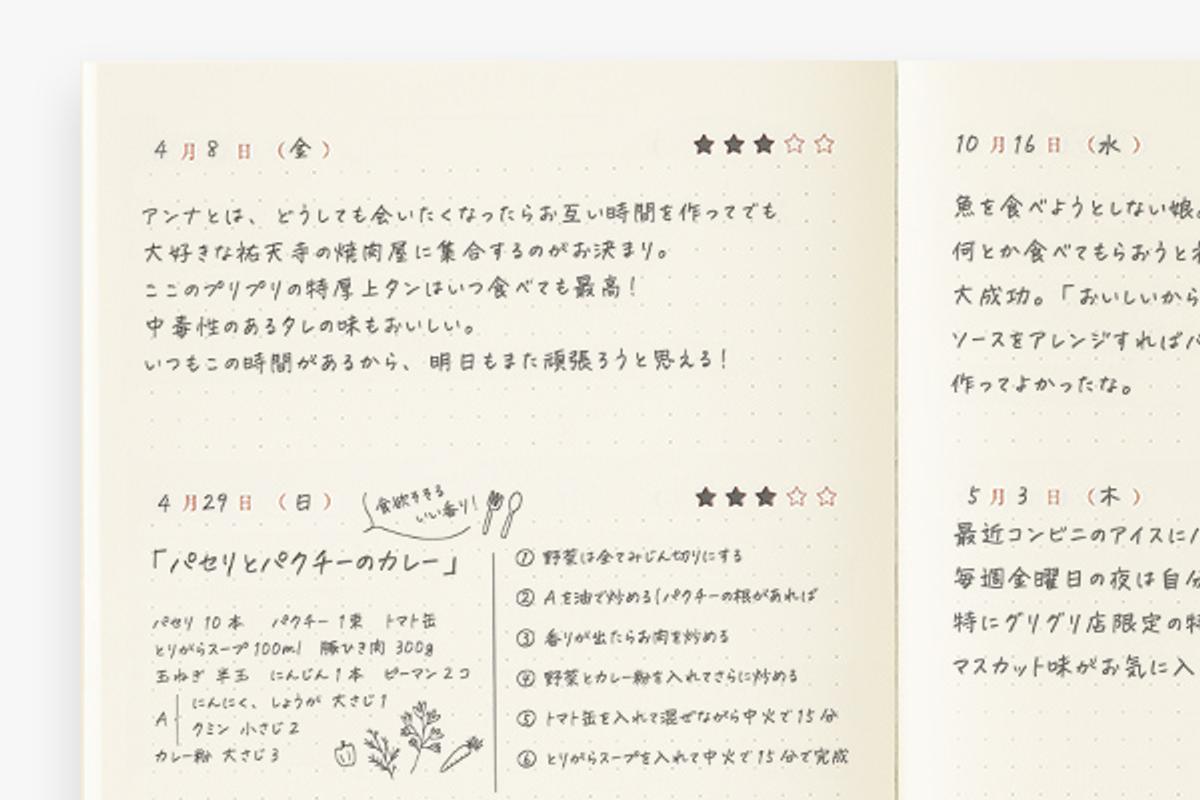 4月8日（金）
アンナとは、どうしても会いたくなったらお互い時間を作ってでも
大好きな祐天寺の焼肉屋に集合するのがお決まり。
ここのプリプリの特厚上タンはいつ食べても最高！
中毒性のあるタレの味もおいしい。
いつもこの時間があるから、明日もまた頑張ろうと思える！
4月29日（日）
食欲そそる
いい香り！
「パセリとパクチーのカレー」
パセリ 10本 パクチー 1束 トマト缶
とりがらスープ 100ml 豚ひき肉 300g
玉ねぎ 半玉 にんじん 1本 ピーマン 2コ
A
にんにく、しょうが 大さじ1
クミン 小さじ2
カレー粉 大さじ3
① 野菜は全てみじん切りにする
② Aを油で炒める(パクチーの根があれば
③ 香りが出たらお肉を炒める
④ 野菜とカレー粉を入れてさらに炒める
⑤ トマト缶を入れて混ぜながら中火で15分
⑥ とりがらスープを入れて中火で15分で完成
10月16日（水）
魚を食べようとしない娘。
何とか食べてもらおうと
大成功。「おいしいから
ソースをアレンジすれば
作ってよかったな。
5月3日（木）
最近コンビニのアイスに
毎週金曜日の夜は自分
特にグリグリ店限定の特
マスカット味がお気に入